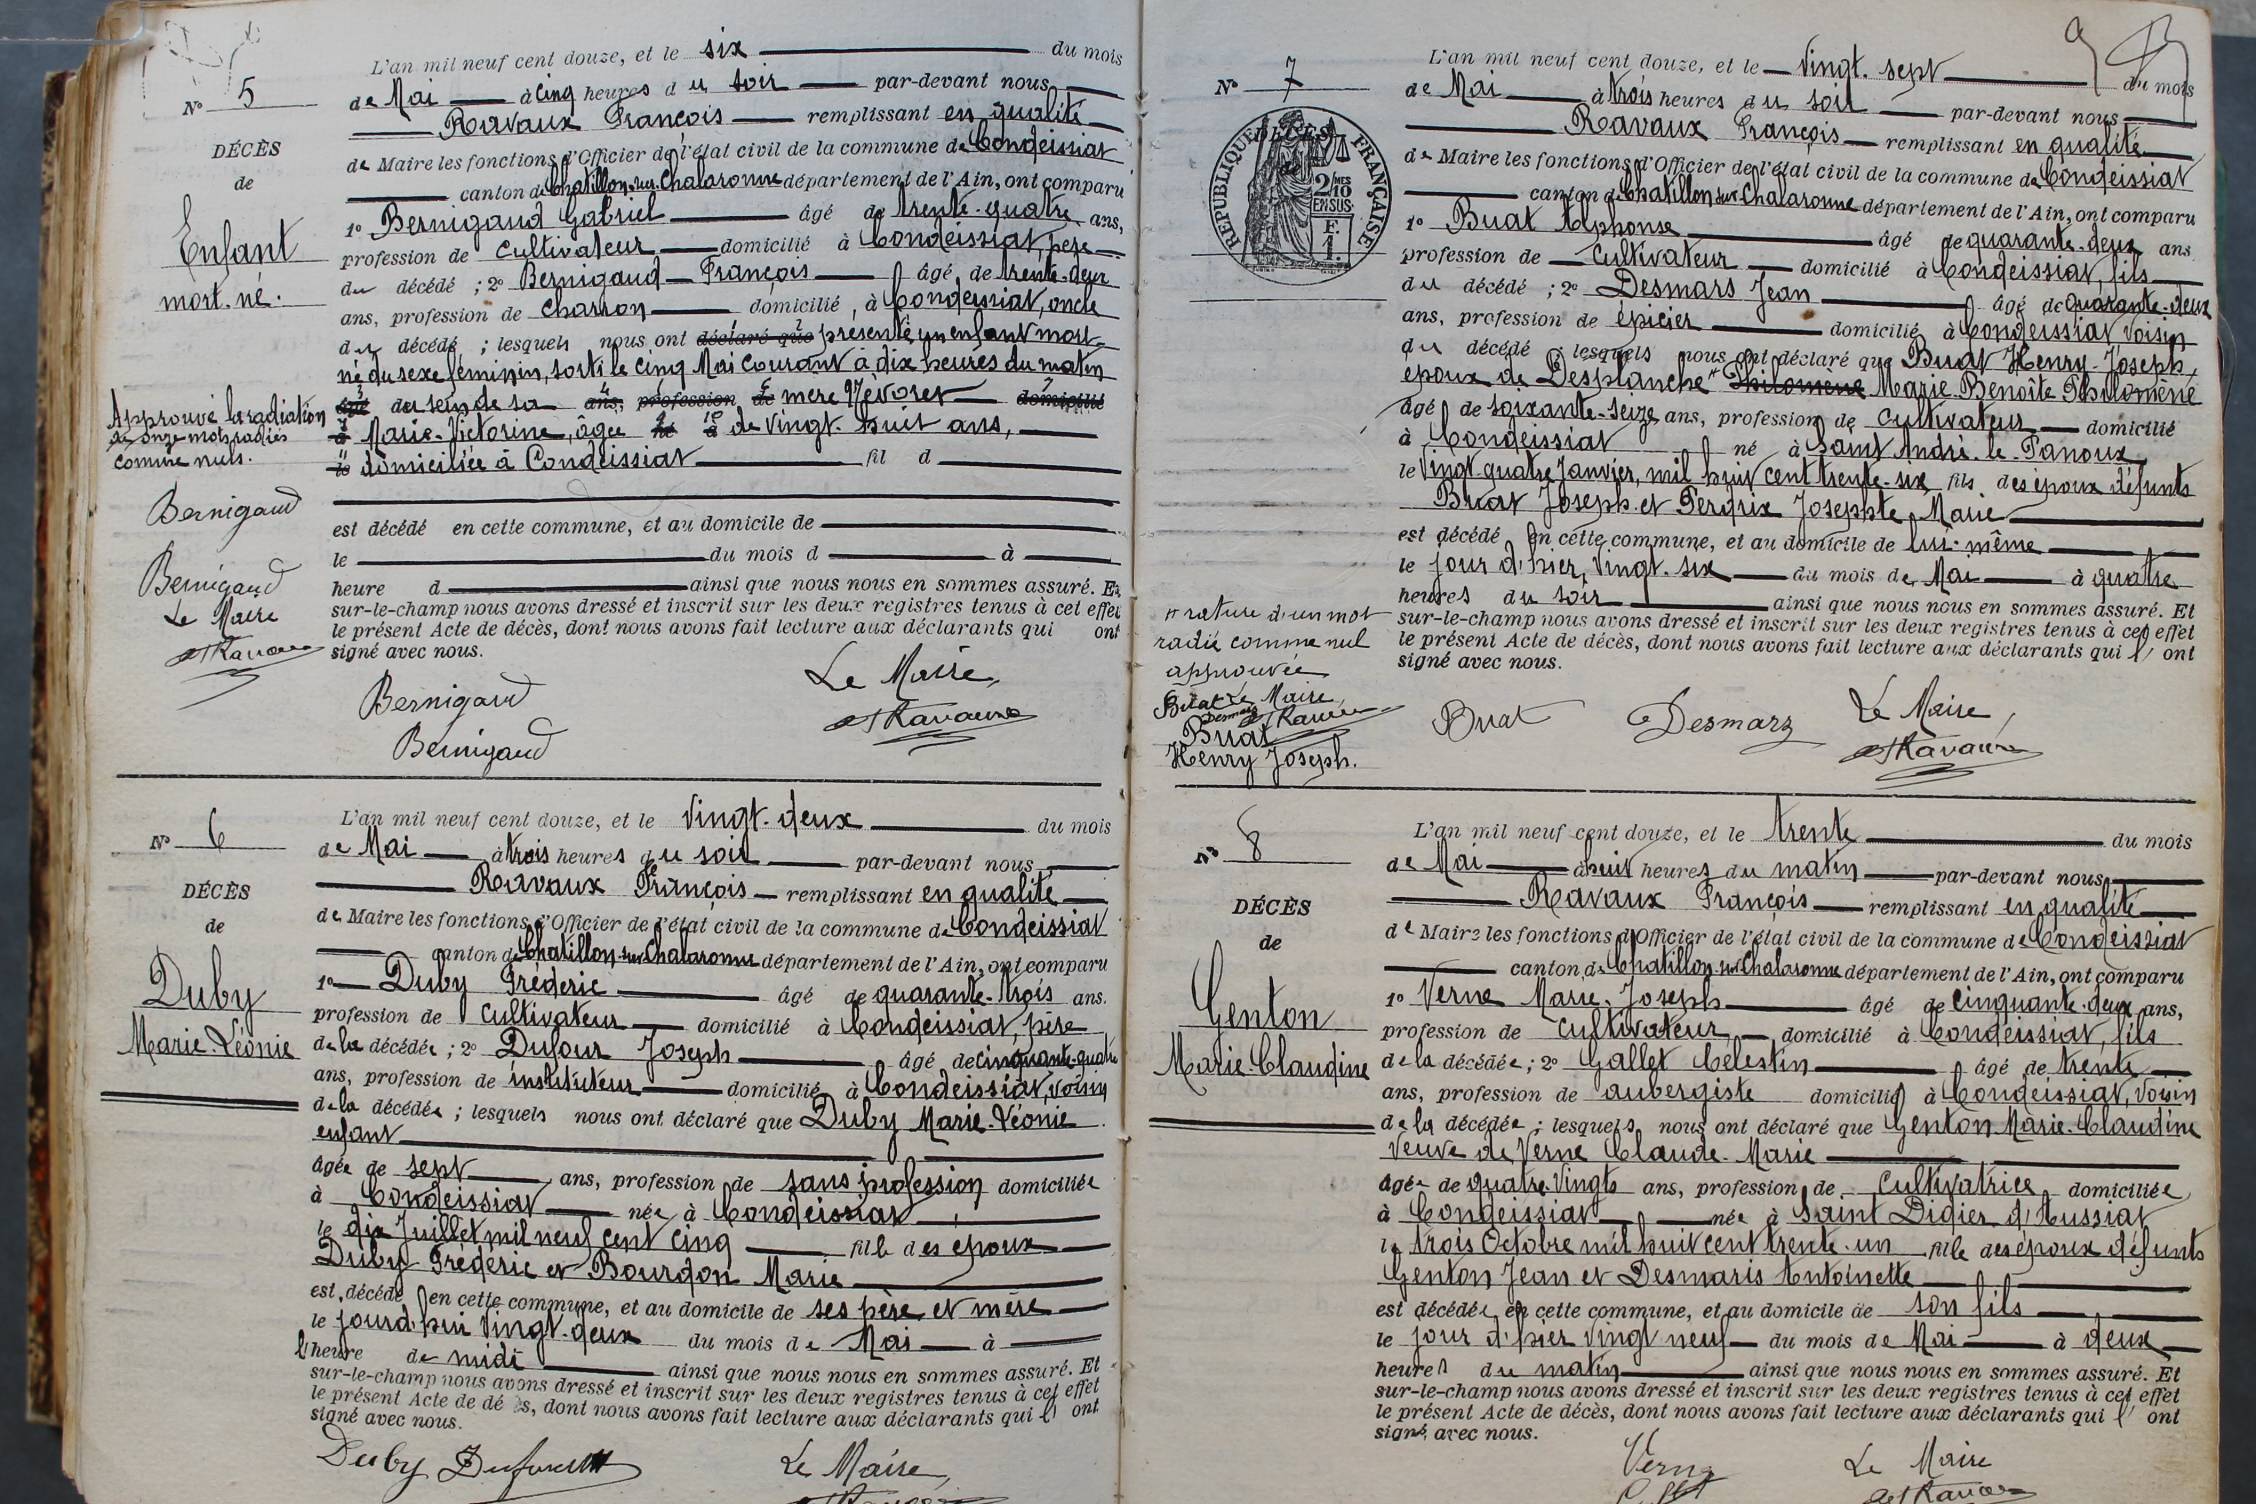 N° 5
DÉCÈS
de
Enfant
mort-né.
L'an mil neuf cent douze, et le six du mois
de Mai à cinq heures du soir par-devant nous
Ravaux François remplissant en qualité
de Maire les fonctions d'Officier de l'état civil de la commune de Condeissiat
canton de Chatillon-sur-Chalaronne département de l'Ain, ont comparu
1° Bernigaud Gabriel âgé de trente-quatre ans,
profession de cultivateur domicilié à Condeissiat, père
du décédé ; 2° Bernigaud François âgé de trente-deux
ans, profession de charron domicilié à Condeissiat, oncle
du décédé ; lesquels nous ont déclaré que présenté un enfant mort-
né du sexe féminin, sorti le cinq Mai courant à dix heures du matin
âgé du sein de sa ans, profession de mère Névoret domicilié
à Marie-Victorine, âgée né à de vingt-huit ans,
le domiciliée à Condeissiat fil d
est décédé en cette commune, et au domicile de
le du mois d à
heure d ainsi que nous nous en sommes assuré. Et
sur-le-champ nous avons dressé et inscrit sur les deux registres tenus à cet effet
le présent Acte de décès, dont nous avons fait lecture aux déclarants qui ont
signé avec nous.
Approuvé la radiation
de onze mots radiés
comme nuls.
Bernigaud
Bernigaud
Le Maire
Ravaux
Bernigaud
Bernigaud
Le Maire,
Ravaux
N° 6
DÉCÈS
de
Duby
Marie-Léonie
L'an mil neuf cent douze, et le vingt-deux du mois
de Mai à trois heures du soir par-devant nous
Ravaux François remplissant en qualité
de Maire les fonctions d'Officier de l'état civil de la commune de Condeissiat
canton de Chatillon-sur-Chalaronne département de l'Ain, ont comparu
1° Duby Fréderic âgé de quarante-trois ans.
profession de cultivateur domicilié à Condeissiat, père
de la décédée ; 2° Dufour Joseph âgé de cinquante-quatre
ans, profession de instituteur domicilié à Condeissiat, voisin
de la décédée ; lesquels nous ont déclaré que Duby Marie-Léonie
enfant
âgée de sept ans, profession de sans profession domiciliée
à Condeissiat née à Condeissiat
le dix Juillet mil neuf cent cinq fille des époux
Duby Fréderic et Bourdon Marie
est décédé en cette commune, et au domicile de ses père et mère
le jourd'hui vingt-deux du mois de Mai à
l'heure de midi ainsi que nous nous en sommes assuré. Et
sur-le-champ nous avons dressé et inscrit sur les deux registres tenus à cet effet
le présent Acte de décès, dont nous avons fait lecture aux déclarants qui l' ont
signé avec nous.
Duby Dufour
Le Maire,
Ravaux
N° 7
RÉPUBLIQUE FRANÇAISE
2/10MES
EN SUS
F.
1.
DÉCÈS
de
Buat
Henry Joseph.
L'an mil neuf cent douze, et le vingt-sept du mois
de Mai à trois heures du soir par-devant nous
Ravaux François remplissant en qualité
de Maire les fonctions d'Officier de l'état civil de la commune de Condeissiat
canton de Chatillon sur Chalaronne département de l'Ain, ont comparu
1° Buat Alphonse âgé de quarante-deux ans
profession de cultivateur domicilié à Condeissiat, fils
du décédé ; 2° Desmars Jean âgé de quarante-deux
ans, profession de épicier domicilié à Condeissiat, voisin
du décédé ; lesquels nous ont déclaré que Buat Henry-Joseph,
époux de Desplanche Philomène Marie-Benoîte Philomène
âgé de soixante-seize ans, profession de cultivateur domicilié
à Condeissiat né à Saint André-le-Panoux
le vingt-quatre Janvier, mil huit cent trente-six fils des époux défunts
Buat Joseph et Perdrix Josephte Marie
est décédé en cette commune, et au domicile de lui-même
le jour d'hier, vingt-six du mois de Mai à quatre
heures du soir ainsi que nous nous en sommes assuré. Et
sur-le-champ nous avons dressé et inscrit sur les deux registres tenus à cet effet
le présent Acte de décès, dont nous avons fait lecture aux déclarants qui l' ont
signé avec nous.
rature d'un mot
radié comme nul
approuvée
Buat Le Maire
Desmarz Ravaux
Buat Desmarz Le Maire,
Ravaux
N° 8
DÉCÈS
de
Genton
Marie Claudine
L'an mil neuf cent douze, et le trente du mois
de Mai à huit heures du matin par-devant nous
Ravaux François remplissant en qualité
de Maire les fonctions d'Officier de l'état civil de la commune de Condeissiat
canton de Chatillon-sur-Chalaronne département de l'Ain, ont comparu
1° Verne Marie-Joseph âgé de cinquante-deux ans,
profession de cultivateur domicilié à Condeissiat, fils
de la décédée ; 2° Gallet Célestin âgé de trente
ans, profession de aubergiste domicilié à Condeissiat, voisin
de la décédée ; lesquels nous ont déclaré que Genton Marie-Claudine
veuve de Verne Claude-Marie
âgée de quatre-vingts ans, profession de cultivatrice domiciliée
à Condeissiat née à Saint Didier d'Aussiat
le trois Octobre mil huit cent trente-un fille des époux défunts
Genton Jean et Desmaris Antoinette
est décédée en cette commune, et au domicile de son fils
le jour d'hier vingt neuf du mois de Mai à deux
heures du matin ainsi que nous nous en sommes assuré. Et
sur-le-champ nous avons dressé et inscrit sur les deux registres tenus à cet effet
le présent Acte de décès, dont nous avons fait lecture aux déclarants qui l' ont
signé avec nous.
Verne
Le Maire
Ravaux